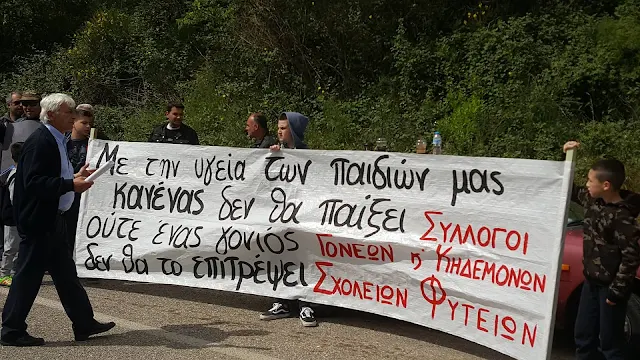 Με την υγεία των παιδιών μας
κανένας δεν θα παίξει
ούτε ένας γονιός
δεν θα το επιτρέψει
ΣΥΛΛΟΓΟΙ
ΓΟΝΕΩΝ η ΚΗΔΕΜΟΝΩΝ
ΣΧΟΛΕΙΩΝ ΦΥΤΕΙΩΝ